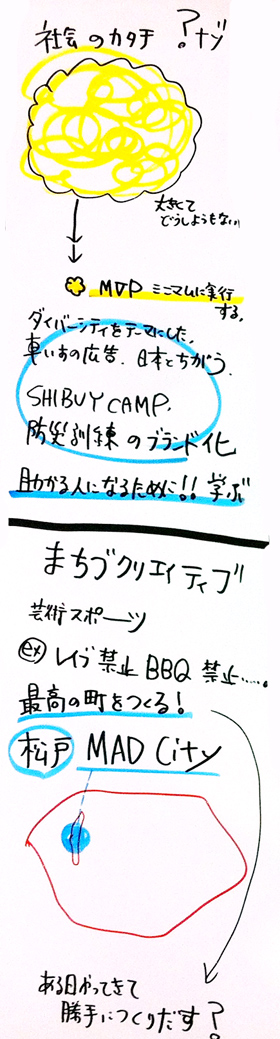 社会のカタチ ?ナゾ
大きくて
どうしようもない
MVP ミニマムに実行
する。
ダイバーシティをテーマにした、
車いすの広告、日本とちがう、
SHIBUY CAMP,
防災訓練のブランド化
助かる人になるために!! 学ぶ
まちづクリエイティブ
芸術スポーツ
ex レイブ禁止 BBQ 禁止……。
最高の町をつくる!
松戸 MAD City
ある日やってきて
勝手につくりだす?